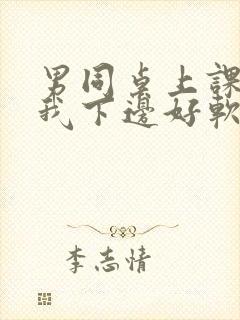 男同桌上課
我下邊好軟
李志情